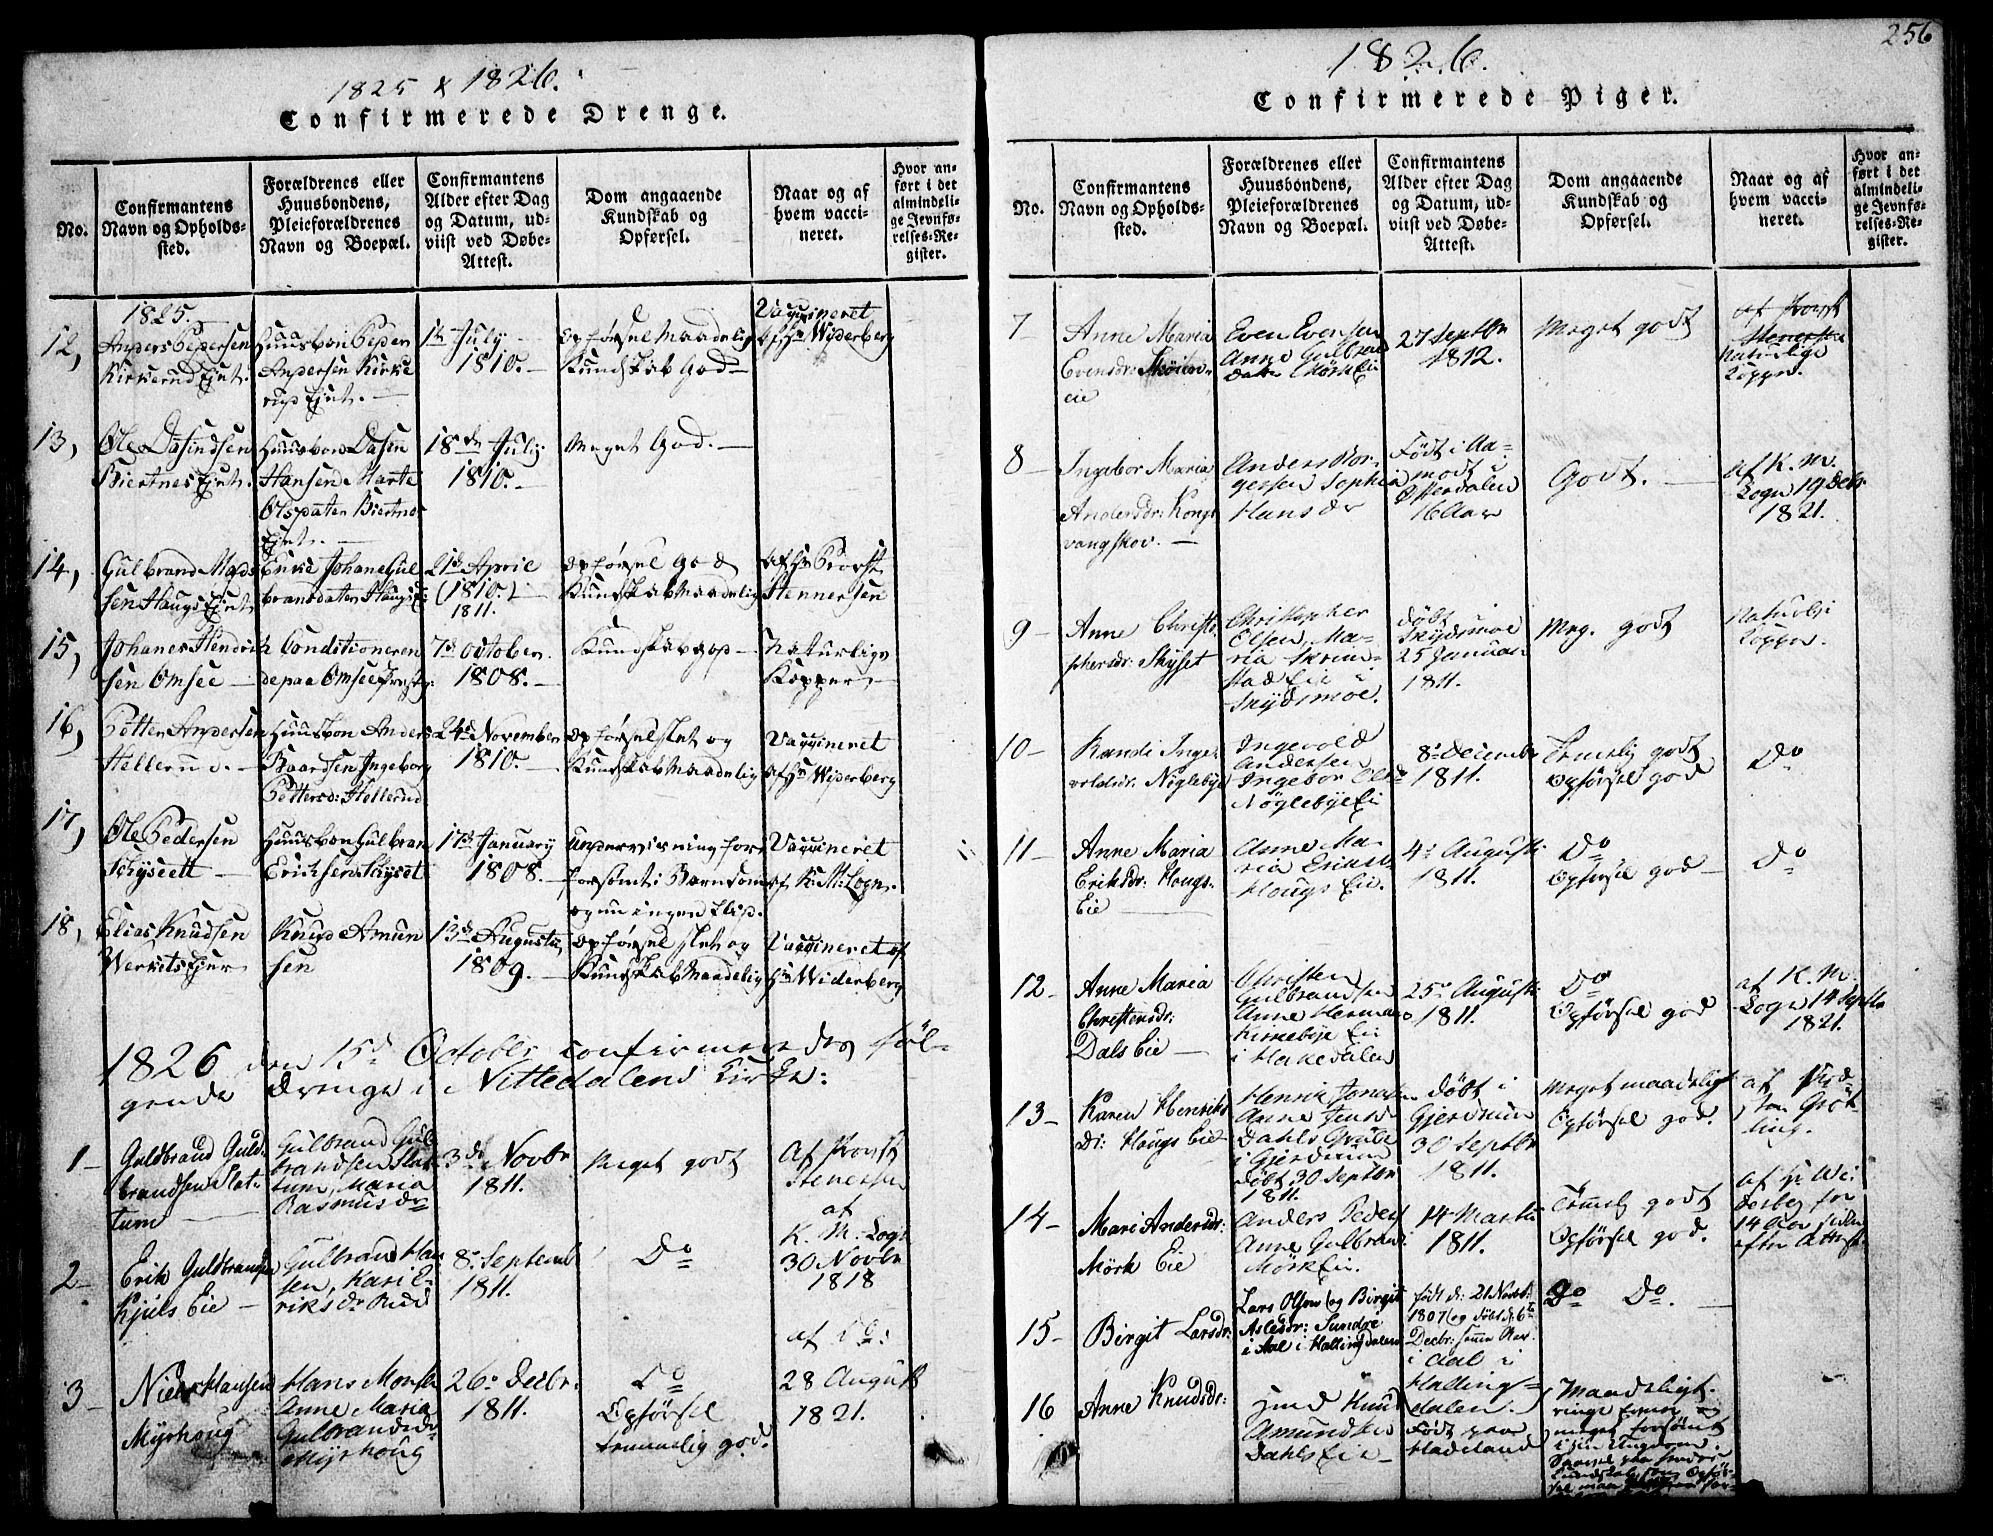 1825 & 1826.
Confirmerede Drenge.
No.
Confirmantens
Navn og Opholds-
sted.
Forældrenes eller
Huusbondens,
Pleieforældrenes
Navn og Boepæl.
Confirmantens
Alder efter Dag
og Datum, ud-
viist ved Døbe-
Attest.
Dom angaaende
Kundskab og
Opførsel.
Naar og af
hvem vacci-
neret.
Hvor an-
ført i det
almindeli-
ge Jevnfø-
relses-Re-
gister.
1825.
12,
Anders Pedersen
Kirkerud Ejet.
Huusbon Peder
Andersen Kirke
rud Ejet.
July
1810.
Opførsel Maadelig
Kundskab God
Vaccineret
af Hr Widerberg
13,
Ole
Biertnes Ejet.
Huusbon
Hansen Marte
Biertnes
Ejet.
18de July
1810.
Meget God.
14,
Gulbrand Mads
sen Haugs Ejet
Enke Johane Gul
bransdater Haugs
21de April
(1810.)
1811.
Opførsel God
Kundskab Maadelig
af Hr Provst
Stennersen
15,
Johanes Hendrik
sen Omsee
Conditioneren
de paa Omsee
7de October
1808.
Kundskab god
Naturlige
Kopper
16,
Petter Andersen
Hellerud.
Huusbon Anders
Baardsen Ingeborg
Pettersd: Hellerud
24de November
1810.
Opførsel slet og
Kundskab Maadelig
Vaccineret
af Hr Widerberg
17,
Ole Pedersen
Schysett
Huusbon Gulbran
Ericksen Schyset
17de January
1808.
Undervisning
forsømt i Barndom
og nu ingen flid.
Vaccineret
af K. M: Logn.
18,
Elias Knudsen
Werkets Ejer
Knud Amun
sen
13de Augusti
1809.
Opførsel slet og
Kundskab Maadelig
Vaccineret af
Hr Widerberg
1826 den 15de October confirmeredes føl-
gende drenge i Nittedalens Kirke:
1
Guldbrand Guld-
brandsen Slat-
tum
Gulbrand Gul
brandsen Slat
tum, Maria
Rasmusdr
3de Novbr
1811.
Meget godt
af Provst
Stenersen
2
Erik Guldbrandsen
Kjuls Eie
Gulbrand Han
sen, Kari E-
riksdr
8de Septemb
1811.
Do
af
K. M. Logn
30 Novbr
1818
3
Niels Hansen
Myrhoug
Hans Monsen
Anne Maria
Gulbrandsdr
Myrhoug
26de Decbr.
1811.
Do
Opførsel
temmelig god.
af Do:
28 August
1821.
256
1826.
Confirmerede Piger.
No.
Confirmantens
Navn og Opholds-
sted.
Forældrenes eller
Huusbondens,
Pleieforældrenes
Navn og Boepæl.
Confirmantens
Alder efter Dag
og Datum, ud-
viist ved Døbe-
Attest.
Dom angaaende
Kundskab og
Opførsel.
Naar og af
hvem vacci-
neret.
Hvor an-
ført i det
almindeli-
ge Jevnfø-
relses-Re-
gister.
7
Anne Maria
Evensdr:
eie
Even Evensen
Anne Gulbrans
Mørk Eie
27 Septbr
1812.
Meget godt
af Provst
Stenersen
Naturlige
Kopper.
8
Ingebor Maria
Andersdr: Kongs
vangskov.
Anders Bor-
gersen Sophia
Hansdr
Født i Aa-
modt i
Østerdalen
16 Aar
Godt.
af K. M.
Logn 19 Decbr
1821.
9
Anne Christo-
phersdr: Skyset
Christopher
Olsen, Ma-
ria Skrim-
stad Eie i
Skydsmoe.
Døbt
Skydsmoe
25 Januar
1811.
Meg. godt
Naturlige
Kopper.
10
Randi Inge-
volddr: Nøglebye
Ingevold
Andersen
Ingebor
Nøglebye Eie
8de Decembr
1811.
Temelig godt
Opførsel god
Do
11
Anne Maria
Eriksdr: Hougs-
Eie
Anne Ma-
ria Eriksdr
Hougs Eie.
4de Augusti
1811.
Do
Opførsel god
Do
12
Anne Maria
Christensdr:
Dals Eie
Christen
Gulbrandsen
Anne Herman
Kirkebye Eie
i Hakedalen
25de Augusti
1811.
Do
Opførsel god
af K. M.
Logn 14 Septbr
1821.
13
Karen Henriks
Dr: Hougs Eie
Henrik Jonsen
Anne Jensd
Dahls Grube
i Gjerdrum
Døbt 30 Septbr
1811.
Døbt i
Gjerdrum
30 Septbr
1811.
Meget maadeligt
Opførsel god.
af
14
Mari Andersdr:
Mørk Eie
Anders Peders
Anne Gulbrand
Mørk Eie.
14 Martii
1811.
Temelig godt
Opførsel god.
af Hr Wi-
derberg for
14 Aar siden
efter Attest
15
Birgit Larsdr:
Lars Olsen (og Birgit
Asledr: Sundre
i Aal i Hallingdalen
Født d: 21 Novbr:
1807 (og døbt d: 6te
Decbr: samme Aar.
i Aal i
Halling-
dalen.
Do Do.
16
Anne Knudsdr:
Knud
Amundsen
Dahls Eie
Født paa
Hadeland
Maadeligt.
ringe Evner og
meget forsømt
i sin Ungdom.